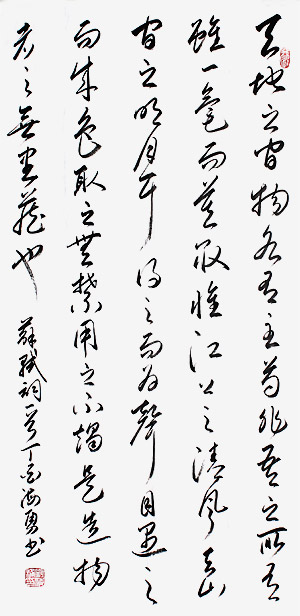 天地之間物各有主苟非吾之所有
雖一毫而莫取惟江上之清風與山
間之明月耳得之而為聲目遇之
而成色取之無禁用之不竭是造物
者之無盡藏也 蘇軾詞一首丁亥海勇書